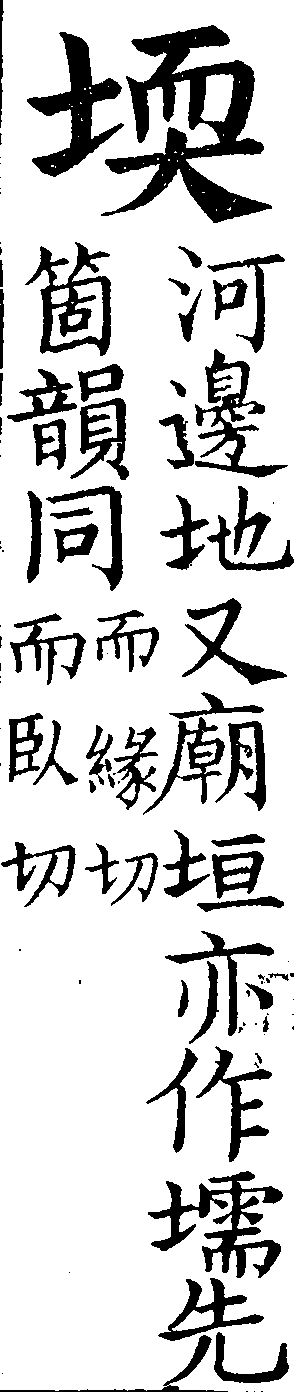 堧
河邊地又廟垣亦作壖先
箇韻同
而緣切
而臥切